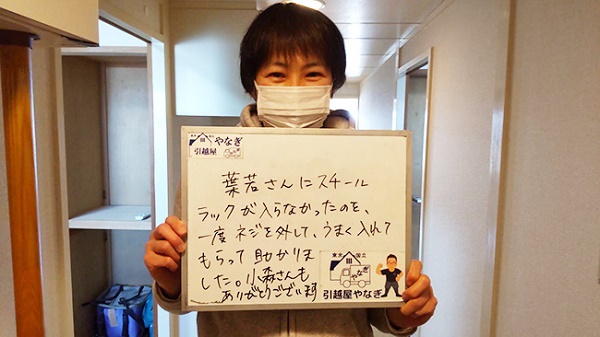 やなぎ
引越屋
葉若さんにスチール
ラックが入らなかったのを、
一度ネジを外して、うまく入れて
もらって助かりま
した。小森さんも
ありがとうござい
東大 国立
やなぎ
引越屋やなぎ